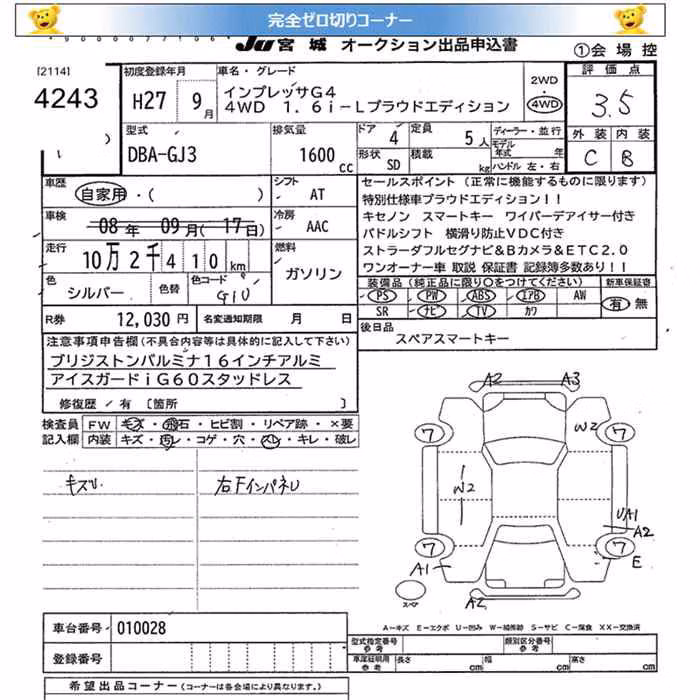 完全ゼロ切りコーナー
JU 宮城 オークション出品申込書
①会場控
[2114]
4243
初度登録年月
H27 9月
車名・グレード
インプレッサG4
4WD 1.6i-Lプラウドエディション
2WD
・
4WD
評価点
3.5
外装 内装
C B
型式
DBA-GJ3
排気量
1600 cc
ドア 4
形状 SD
定員 5人
積載 kg
ディーラー・並行
モデル年式 年
ハンドル 左・右
車歴
自家用・( )
シフト
AT
車検
08年 09月(17日)
冷房
AAC
走行
10万2千410km
燃料
ガソリン
色
シルバー
色替
色コード
G1U
R券
12,030円
名変通知期限 月 日
セールスポイント (正常に機能するものに限ります)
特別仕様車プラウドエディション!!
キセノン スマートキー ワイパーデアイサー付き
パドルシフト 横滑り防止VDC付き
ストラーダフルセグナビ&Bカメラ&ETC2.0
ワンオーナー車 取説 保証書 記録簿多数あり!!
装備品 (純正品に限り○をつけてください)
新車保証書
PS PW ABS エアB AW
SR ナビ TV カワ
有 無
後日品
スペアスマートキー
注意事項申告欄 (不具合内容等は具体的に記入して下さい)
ブリジストンバルミナ16インチアルミ
アイスガードiG60スタッドレス
修復歴/有 [箇所 ]
検査員記入欄
FW キズ・飛石・ヒビ割・リペア跡・×要
内装 キズ・汚レ・コゲ・穴・スレ・キレ・破レ
キズU
右FインパネU
A2
A3
ワ
W2
ワ
W2
UA1
A2
ワ
ワ
A1
E
スペア
A2
A-キズ E-エクボ U-凹み W-補修跡 S-サビ C-腐食 XX-交換済
車台番号 010028
登録番号
型式指定番号 参考
類別区分番号 参考
車庫証明用 参考
長さ cm
幅 cm
高さ cm
希望出品コーナー (コーナーは各会場により異なります。)